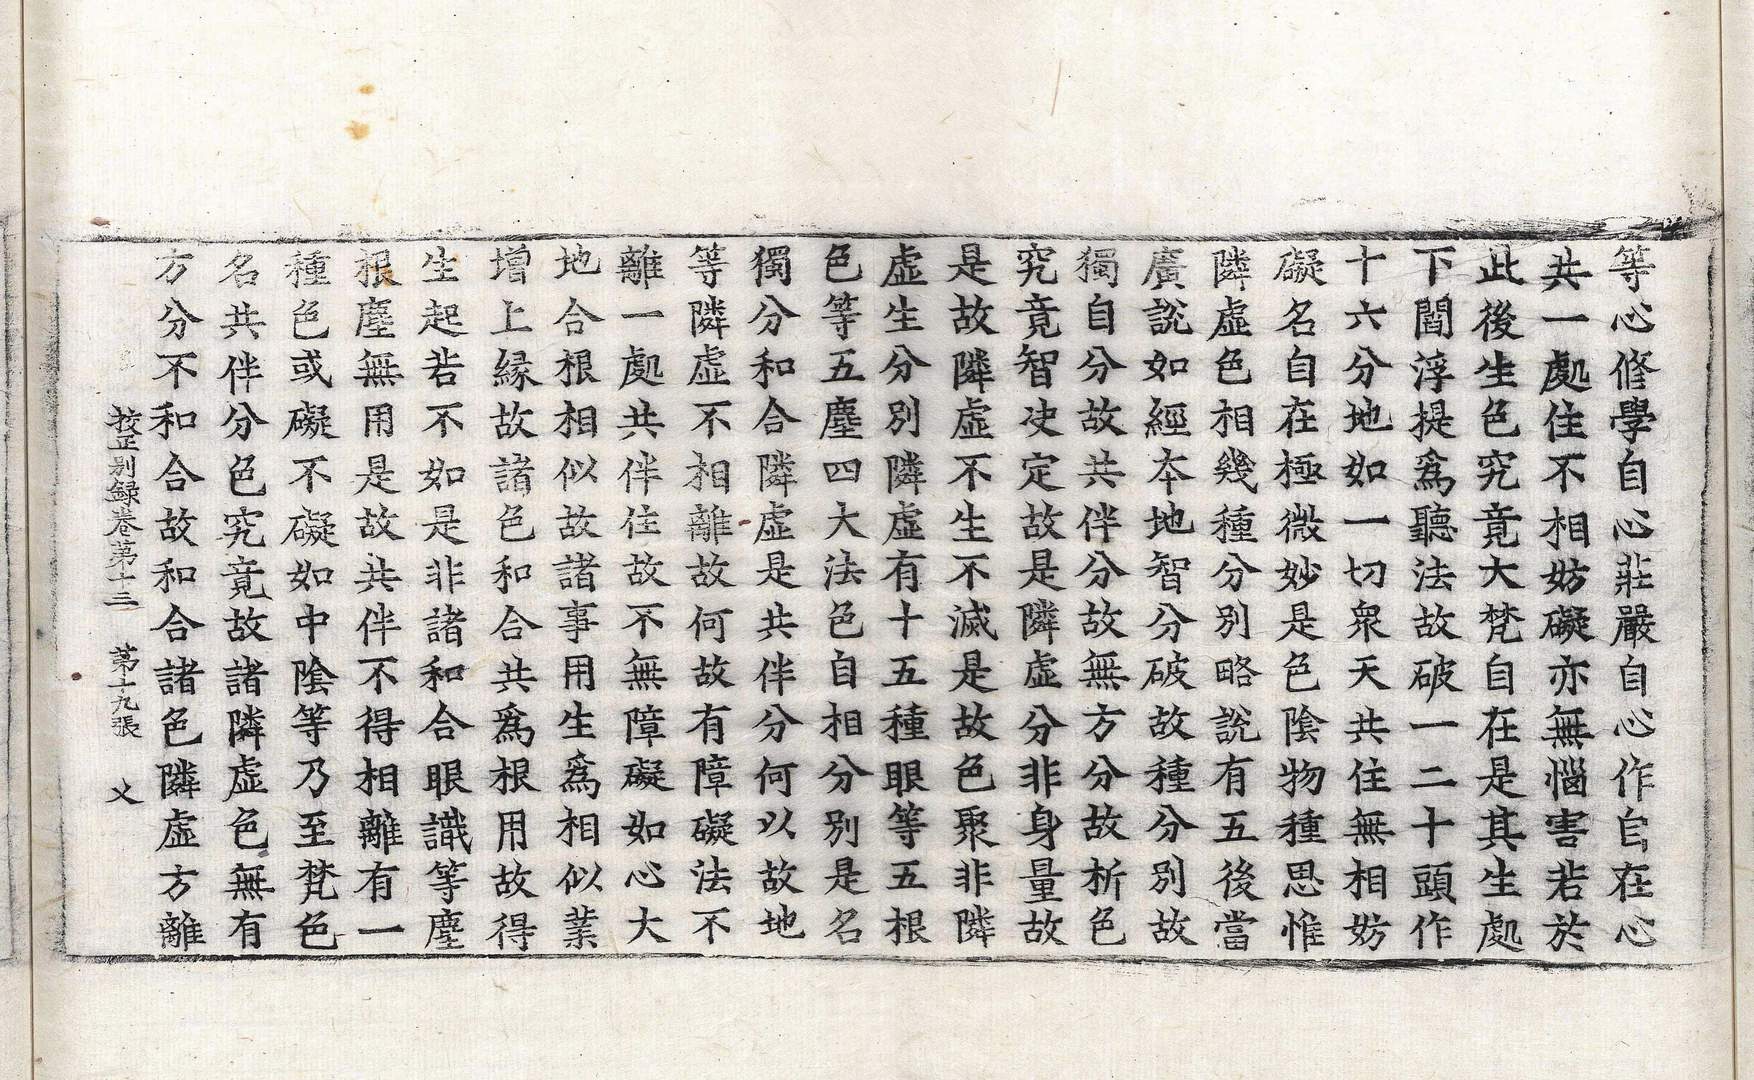 等心修學自心莊嚴自心作自在心
共一處住不相妨礙亦無惱害若於
此後生色究竟大梵自在是其生處
下閻浮提爲聽法故破一二十頭作
十六分地如一切衆天共住無相妨
礙名自在極微妙是色陰物種思惟
隣虛色相幾種分別略說有五後當
廣說如經本地智分破故種分別故
獨自分故共伴分故無方分故析色
究竟智决定故是隣虛分非身量故
是故隣虛不生不滅是故色聚非隣
虛生分別隣虛有十五種眼等五根
色等五塵四大法色自相分別是名
獨分和合隣虛是共伴分何以故地
等隣虛不相離故何故有障礙法不
離一處共伴住故不無障礙如心大
地合根相似故諸事用生爲相似業
增上緣故諸色和合共爲根用故得
生起若不如是非諸和合眼識等塵
根塵無用是故共伴不得相離有一
種色或礙不礙如中陰等乃至梵色
名共伴分色究竟故諸隣虛色無有
方分不和合故和合諸色隣虛方離
校正別録卷第十三　第十九張　乂